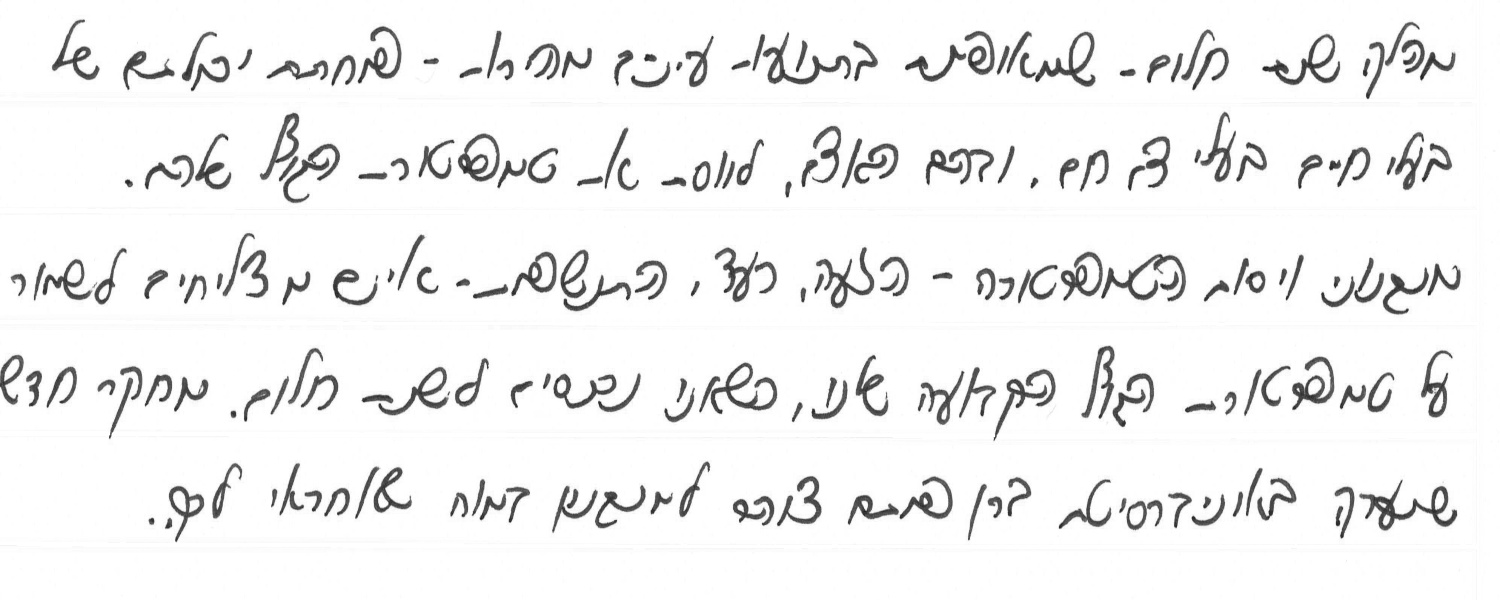 מהלך שנת חלום - שמאופיינת בתנועות עיניים מהירות - פוחתת יכולתם של
בעלי חיים בעלי דם חם, ובהם האדם, לווסת את טמפרטורת הגוף שלהם.
מנגנוני ויסות הטמפרטורה - הזעה, רעד, התנשפות - אינם מצליחים לשמור
על טמפרטורת הגוף הקבועה שלנו, כשאנו נכנסים לשנת חלום. מחקר חדש
שנערך באוניברסיטת ברן פותם צוהר למנגנון במוח שאחראי לכך.